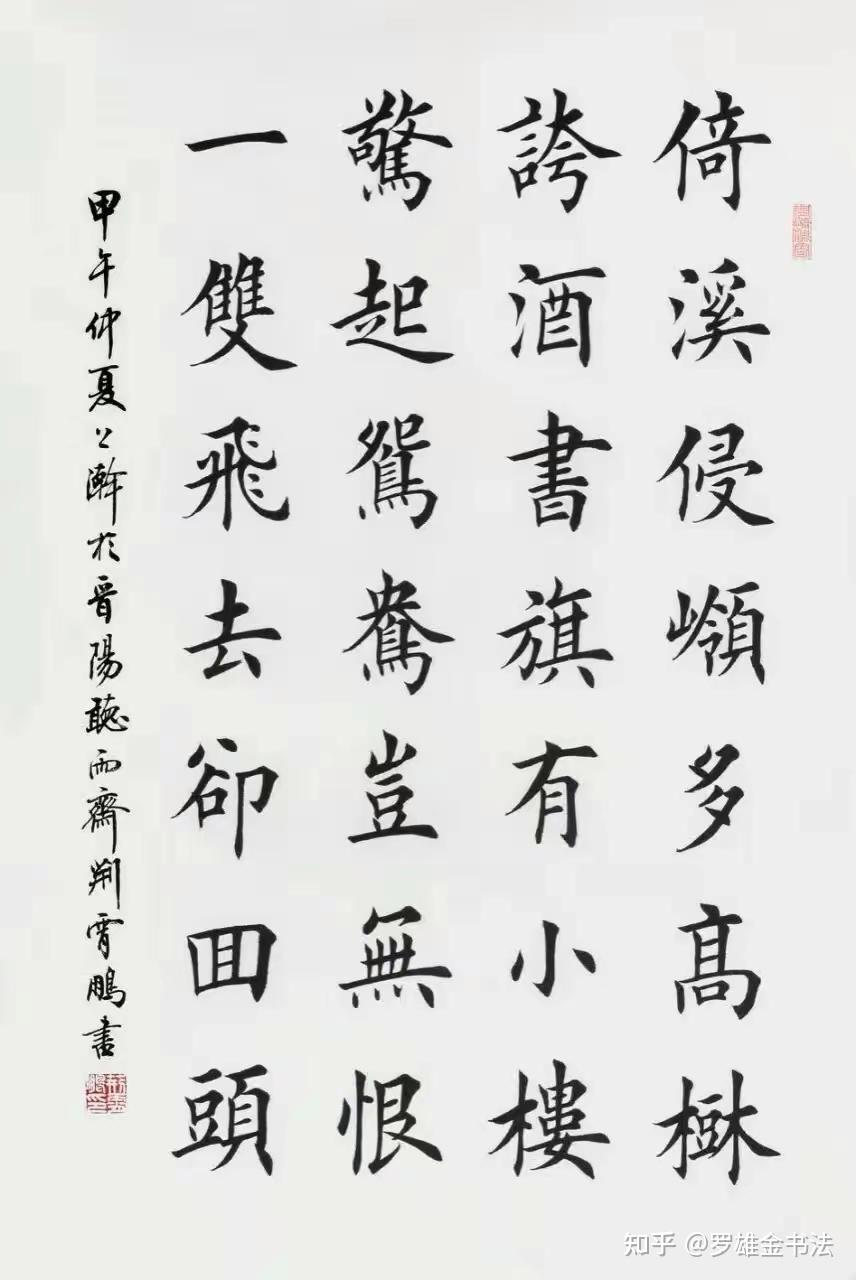 倚溪侵嶺多高樹
誇酒書旗有小樓
驚起鴛鴦豈無恨
一雙飛去卻回頭
甲午仲夏公澣於晉陽聽雨齋荆霄鵬書
知乎 @罗雄金书法